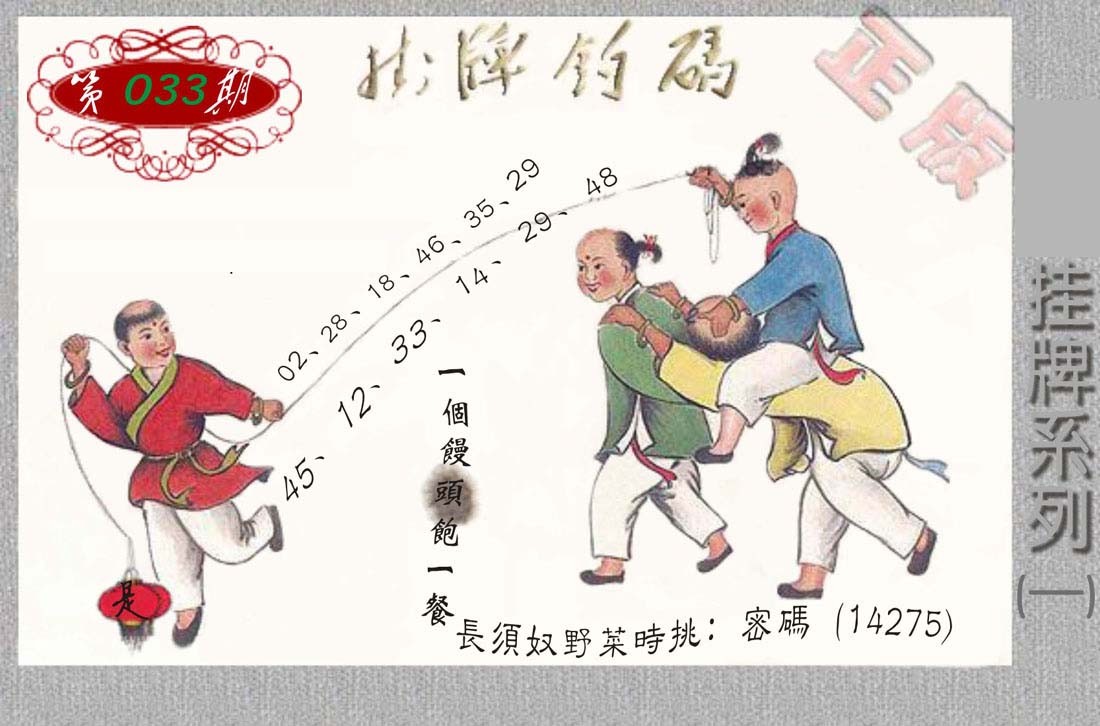 第033期
掛牌釣碼
正版
02、28、18、46、35、29
45、12、33、14、29、48
一個饅頭飽一餐
是
長須奴野菜時挑：密碼（14275）
挂牌系列(一)